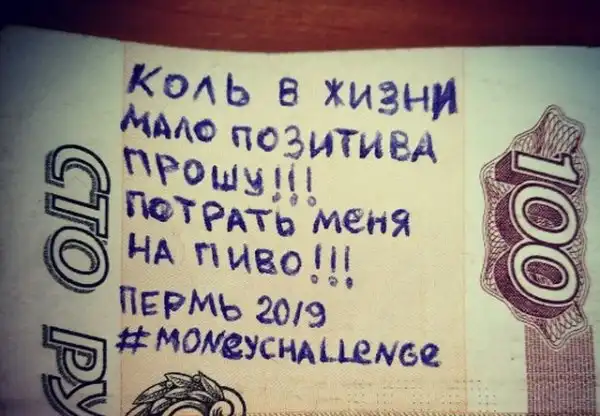 КОЛЬ В ЖИЗНИ
МАЛО ПОЗИТИВА
ПРОШУ!!!
ПОТРАТЬ МЕНЯ
НА ПИВО!!!
ПЕРМЬ 2019
#MONEYCHALLENGE
СТО РУ
100